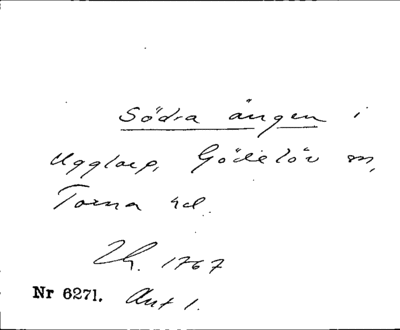 Södra ängen i
Ugglarp, Gödelöv sn,
Torna hd.
Lh. 1767
Nr 6271. Akt 1.